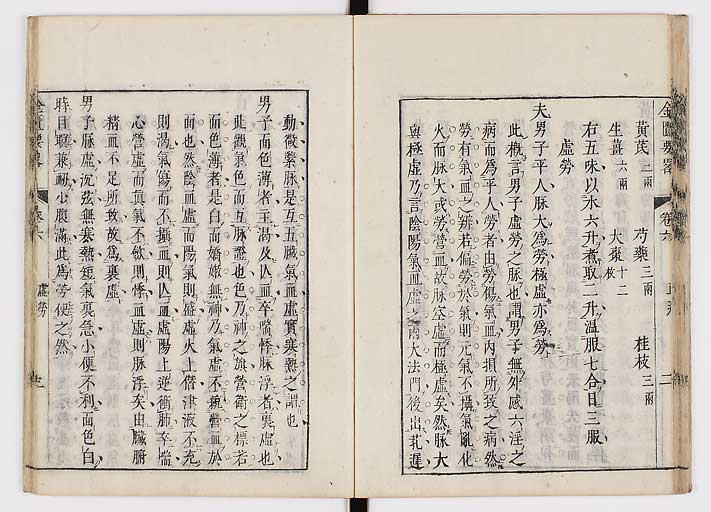 金匱要畧 卷六 二
黃芪三兩 芍藥三兩 桂枝三兩
生薑六兩 大棗十二枚
右五味以水六升煮取二升溫服七合日三服
虛勞
夫男子平人脉大爲勞極虛亦爲勞
此槪言男子虛勞之脉也謂男子無外感六淫之
病而爲平人勞者由勞傷氣血內損所致之病然
勞有氣血之辨若偏勞於氣則元氣不攝氣亂化
火而脉大或勞營血故脉空虛而極虛矣然脉大
與極虛乃言陰陽氣血虛之兩大法門後出芤遲
動微緊脉是互五臟氣血虛實寒熱之謂也
男子面色薄者主渴及亾血卒喘悸脉浮者裏虛也
此觀氣色而互脉證也色乃神之旗營衛之標若
面色薄者是白而嬌嫩無神乃氣虛不統營血於
面也然陰血虛而陽氣則盛虛火上僭津液不充
則渴氣傷而不攝血則亾血虛陽上逆衝肺卒喘
心營虛而眞氣不斂則悸血虛則脉浮矣由臟腑
精血不足所致故爲裏虛
男子脉虛沉弦無寒熱短氣裏急小便不利面色白
時目瞑兼衄少腹滿此爲勞使之然
金匱要畧 卷六 虛勞